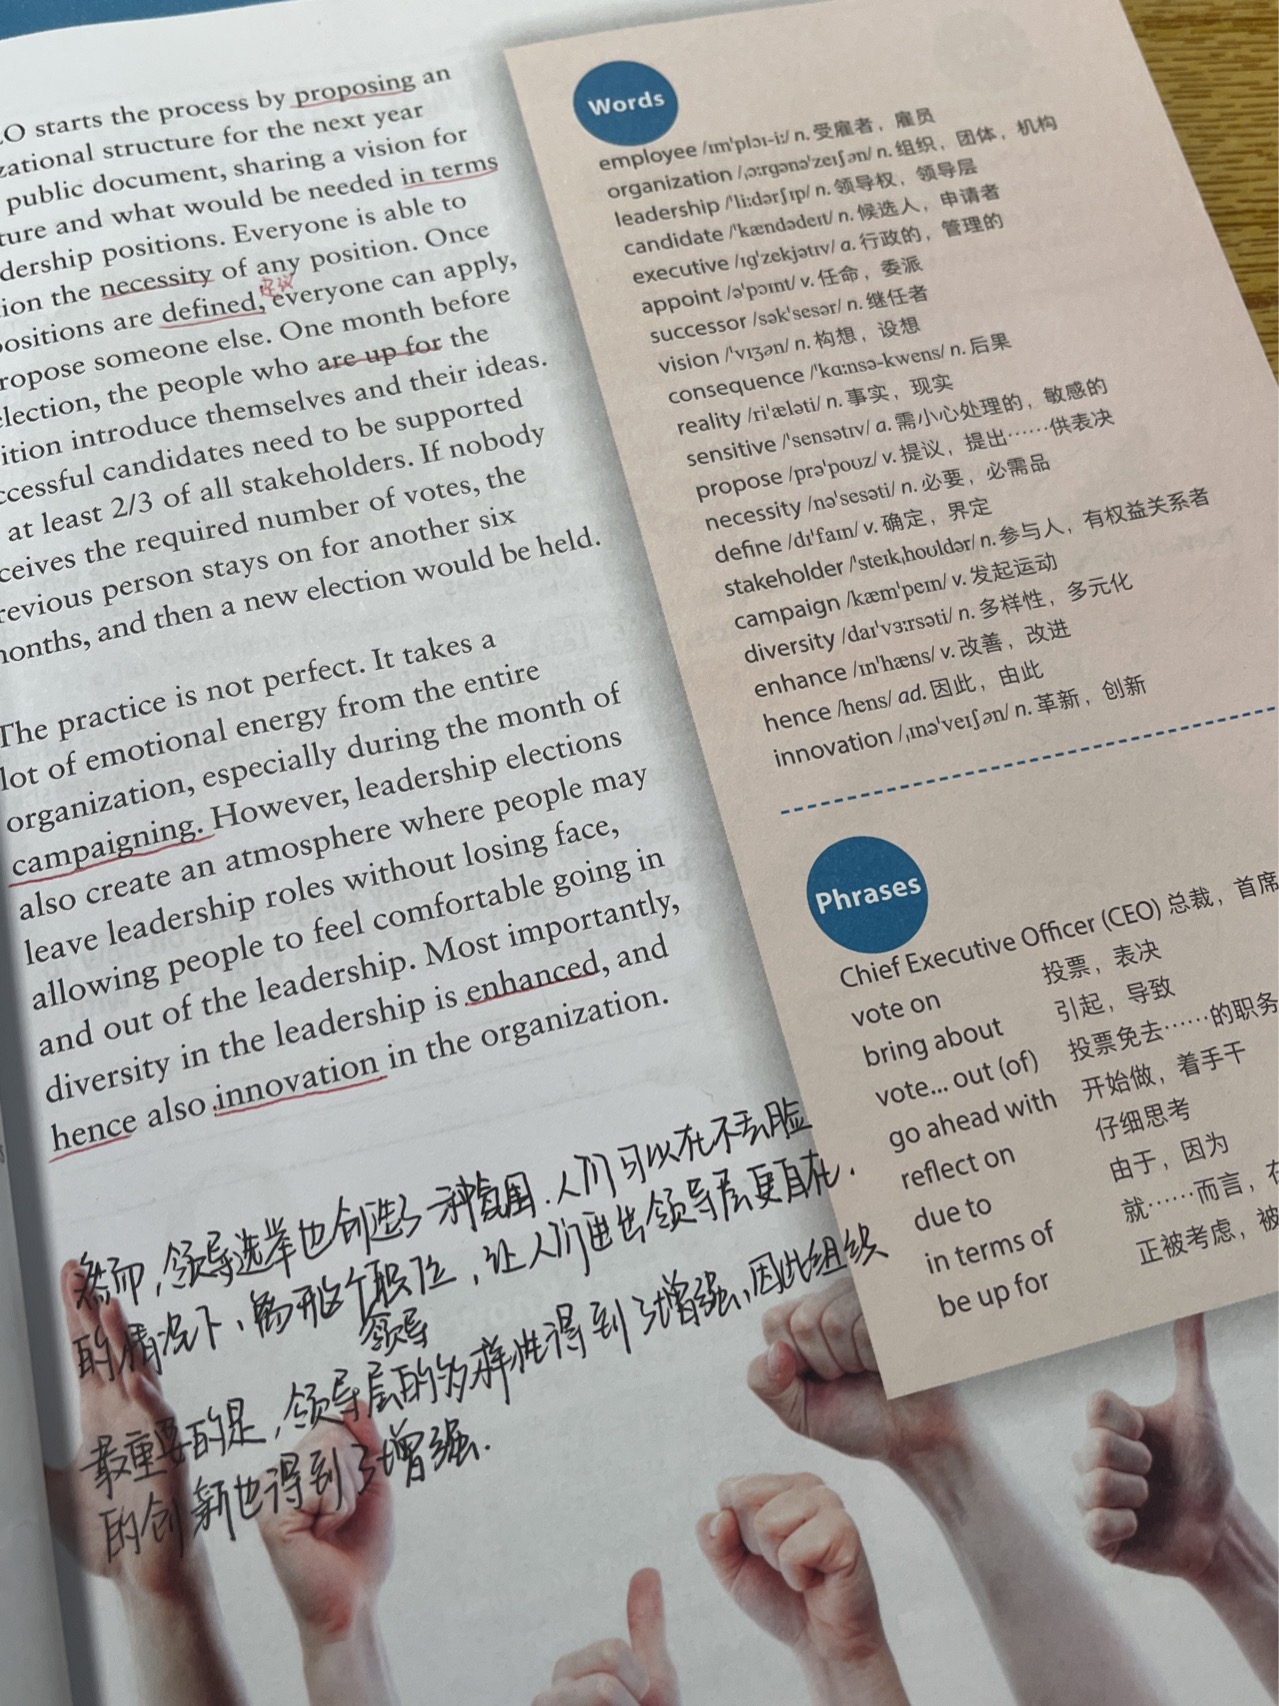 O starts the process by proposing an
zational structure for the next year
public document, sharing a vision for
ture and what would be needed in terms
dership positions. Everyone is able to
ion the necessity of any position. Once
ositions are defined, everyone can apply,
ropose someone else. One month before
lection, the people who are up for the
ition introduce themselves and their ideas.
ccessful candidates need to be supported
at least 2/3 of all stakeholders. If nobody
ceives the required number of votes, the
revious person stays on for another six
onths, and then a new election would be held.
The practice is not perfect. It takes a
lot of emotional energy from the entire
organization, especially during the month of
campaigning. However, leadership elections
also create an atmosphere where people may
leave leadership roles without losing face,
allowing people to feel comfortable going in
and out of the leadership. Most importantly,
diversity in the leadership is enhanced, and
hence also innovation in the organization.
然而,领导选举也创造了一种氛围.人们可以在不丢脸
的情况下、离开这个职位,让人们进出领导层更自在.
领导
最重要的是,领导层的多样性得到了增强、因此组织
的创新也得到了增强.
Words
employee /ɪmˈplɔɪ-iː/ n. 受雇者，雇员
organization /ˌɔːrɡənəˈzeɪʃən/ n. 组织，团体，机构
leadership /ˈliːdərʃɪp/ n. 领导权，领导层
candidate /ˈkændədeɪt/ n. 候选人，申请者
executive /ɪɡˈzekjətɪv/ a. 行政的，管理的
appoint /əˈpɔɪnt/ v. 任命，委派
successor /səkˈsesər/ n. 继任者
vision /ˈvɪʒən/ n. 构想，设想
consequence /ˈkɑːnsə-kwens/ n. 后果
reality /riˈæləti/ n. 事实，现实
sensitive /ˈsensətɪv/ a. 需小心处理的，敏感的
propose /prəˈpoʊz/ v. 提议，提出……供表决
necessity /nəˈsesəti/ n. 必要，必需品
define /dɪˈfaɪn/ v. 确定，界定
stakeholder /ˈsteɪkˌhoʊldər/ n. 参与人，有权益关系者
campaign /kæmˈpeɪn/ v. 发起运动
diversity /daɪˈvɜːrsəti/ n. 多样性，多元化
enhance /ɪnˈhæns/ v. 改善，改进
hence /hens/ ad. 因此，由此
innovation /ˌɪnəˈveɪʃən/ n. 革新，创新
Phrases
Chief Executive Officer (CEO) 总裁，首席
vote on 投票，表决
bring about 引起，导致
vote... out (of) 投票免去……的职务
go ahead with 开始做，着手干
reflect on 仔细思考
due to 由于，因为
in terms of 就……而言，在
be up for 正被考虑，被